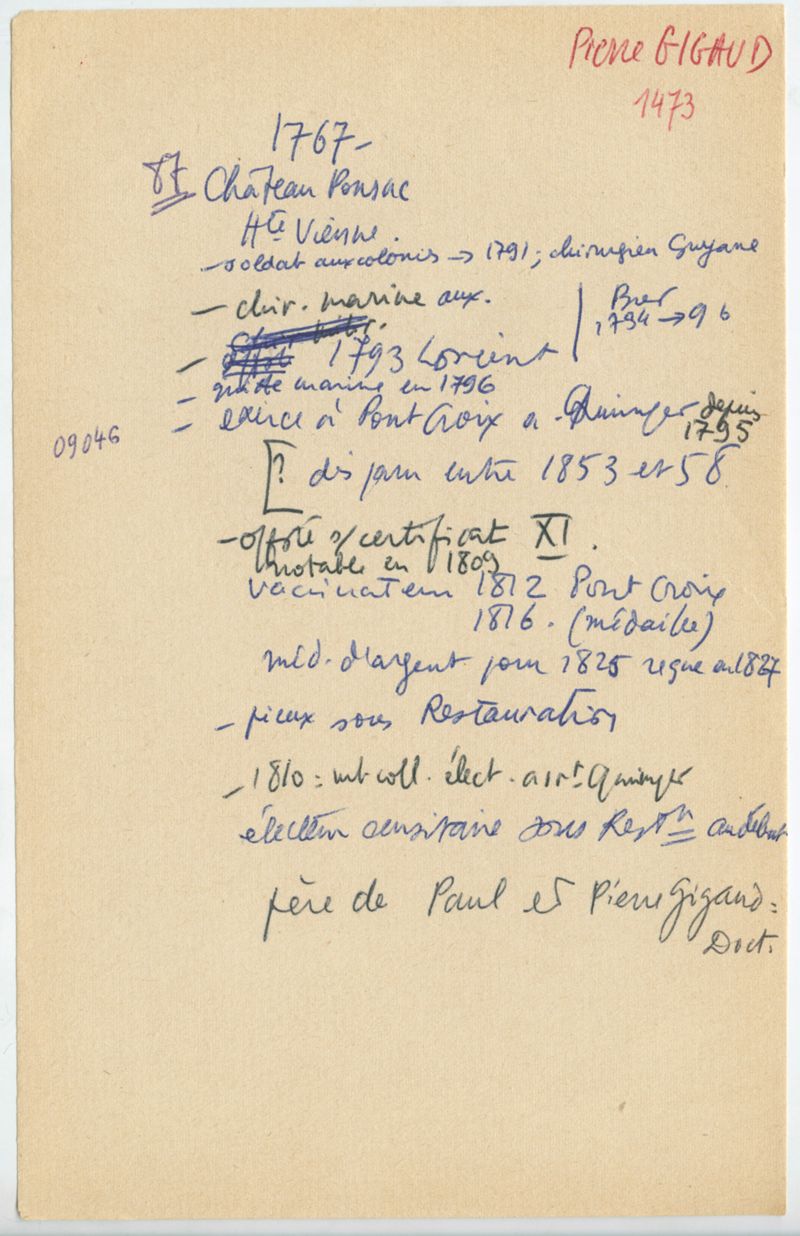 Pierre GIGAUD
1473
1767-
87 Château Ponsac
Hte Vienne.
- soldat aux colonies → 1791; chirurgien Guyane
- chir. marine aux.
Brest
1794 → 96
- 1793 Lorient
- quitte marine en 1796
- exerce à Pont Croix a. Quimper depuis
1795
09046
[? disparu entre 1853 et 58
- offsté s/certificat XI.
notable en 1809
vaccinateur 1812 Pont Croix
1816. (médaille)
méd. d'argent pour 1825 reçue en 1827
- pieux sous Restauration
- 1810 = mb coll. élect. arrt Quimper
électeur censitaire sous Restn au début
père de Paul et Pierre Gigaud =
Doct.